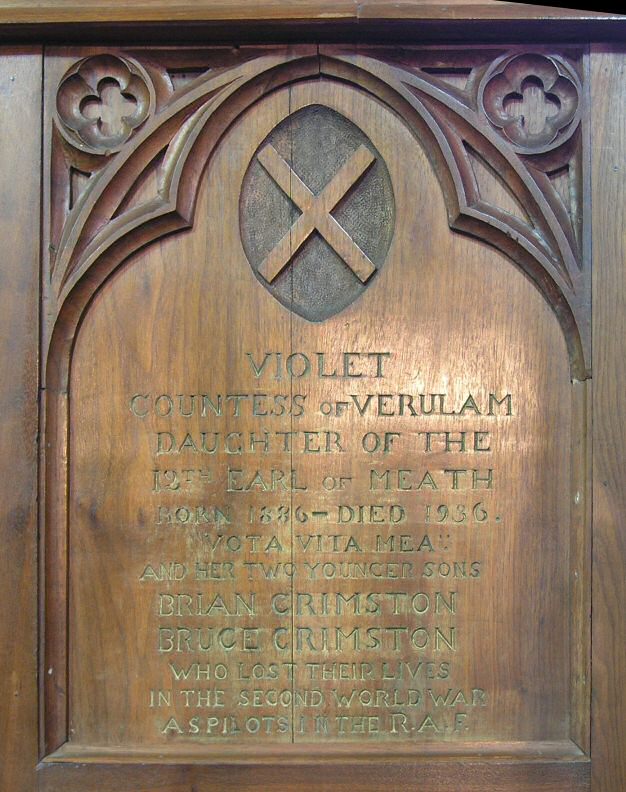 VIOLET
COUNTESS OF VERULAM
DAUGHTER OF THE
12TH EARL OF MEATH
BORN 1886–DIED 1936.
"VOTA VITA MEA"
AND HER TWO YOUNGER SONS
BRIAN GRIMSTON
BRUCE GRIMSTON
WHO LOST THEIR LIVES
IN THE SECOND WORLD WAR
AS PILOTS IN THE R.A.F.